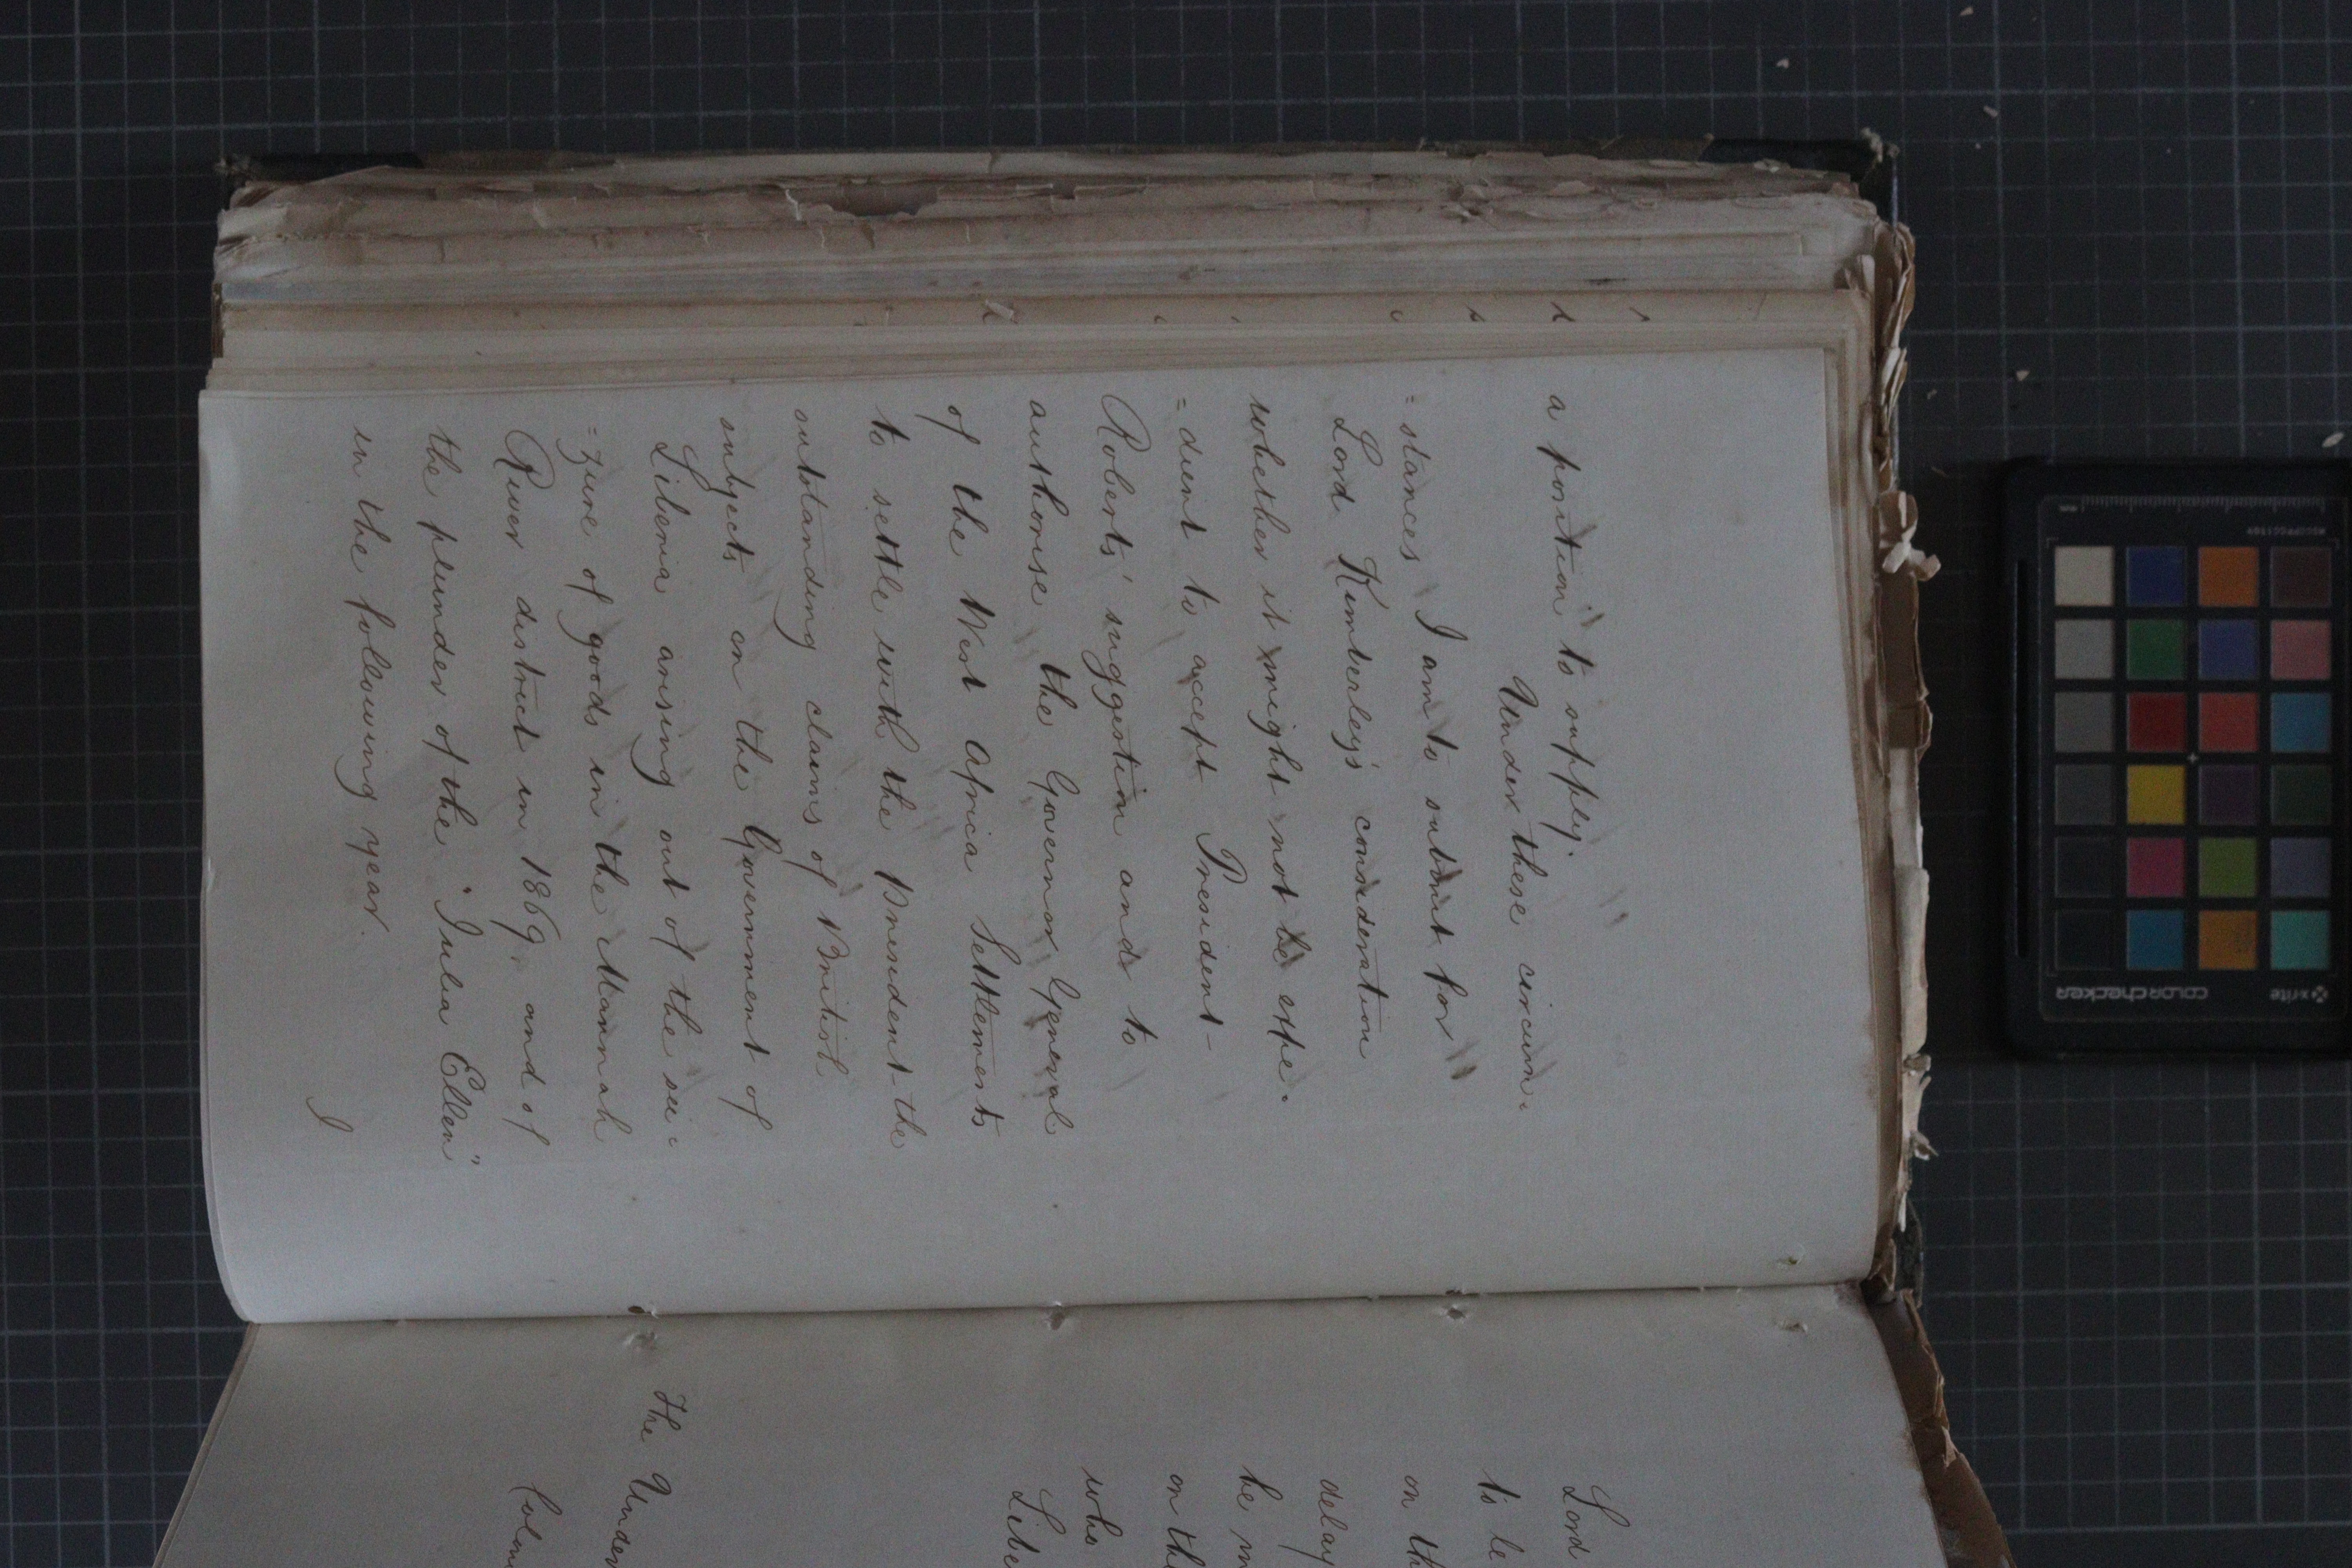 a position" to supply.
Under these circum:
=stances I am to submit for
Lord Kimberley's consideration
whether it might not be expe:
=dient to accept President-
Roberts' suggestion and to
authorise the Governor General
of the West Africa Settlements
to settle with the President-the
outstanding claims of British
subjects on the Government of
Liberia arising out of the sei:
=zure of goods in the Mannah
River district in 1869, and of
the plunder of the "Julia Ellen"
in the following year.
I
Lord
to be
on th
delay
be m
on the
who
Libe
The Under
Colon
x-rite
colorchecker